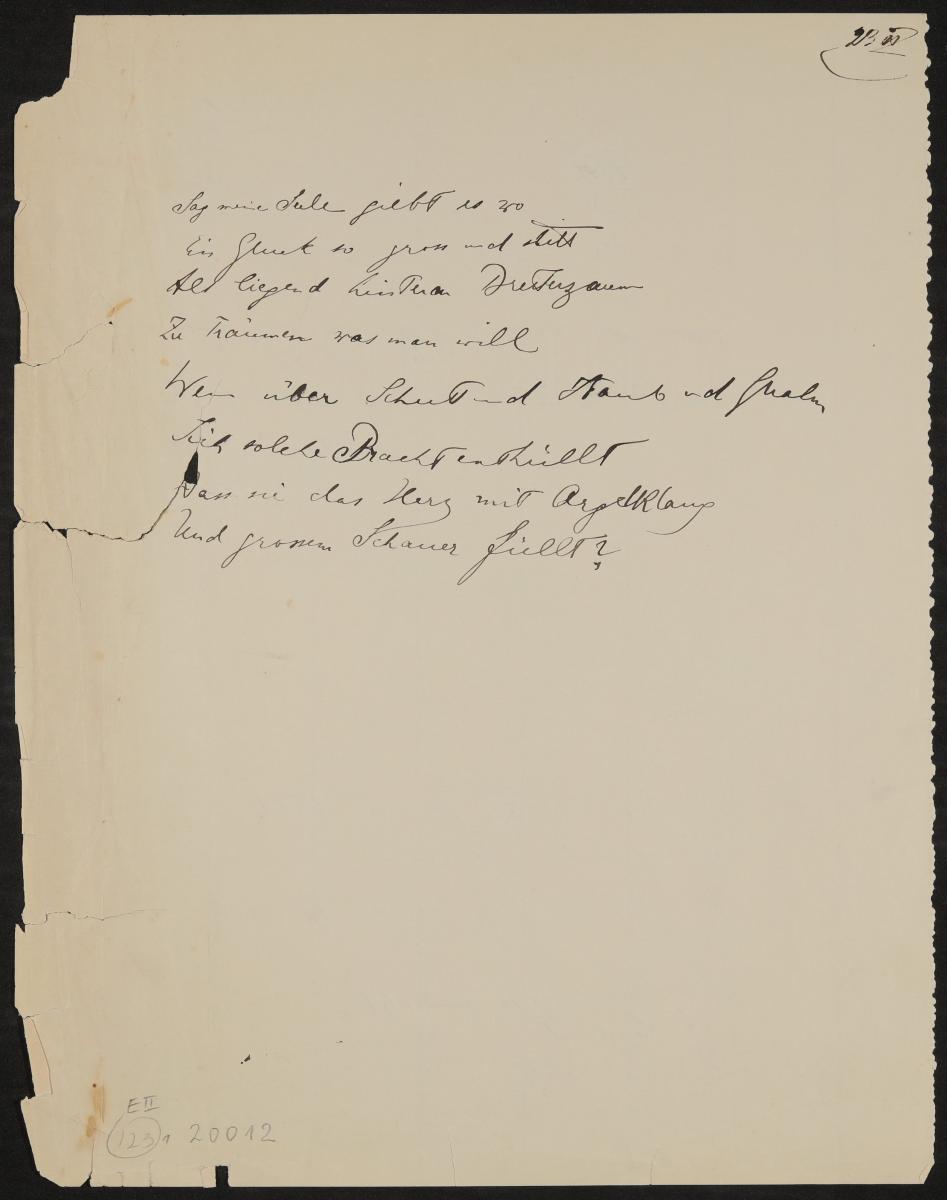 Sag meine Seele giebt es wo
Ein Glück so gross und still
Als liegend hinterm Bretterzaun
Zu Träumen was man will
Wenn über Schutt und Staub und Qualm
Sich solche Pracht enthüllt
Dass sie das Herz mit Orgelklang
Und grossem Schauer füllt?
EII
123 1 20012